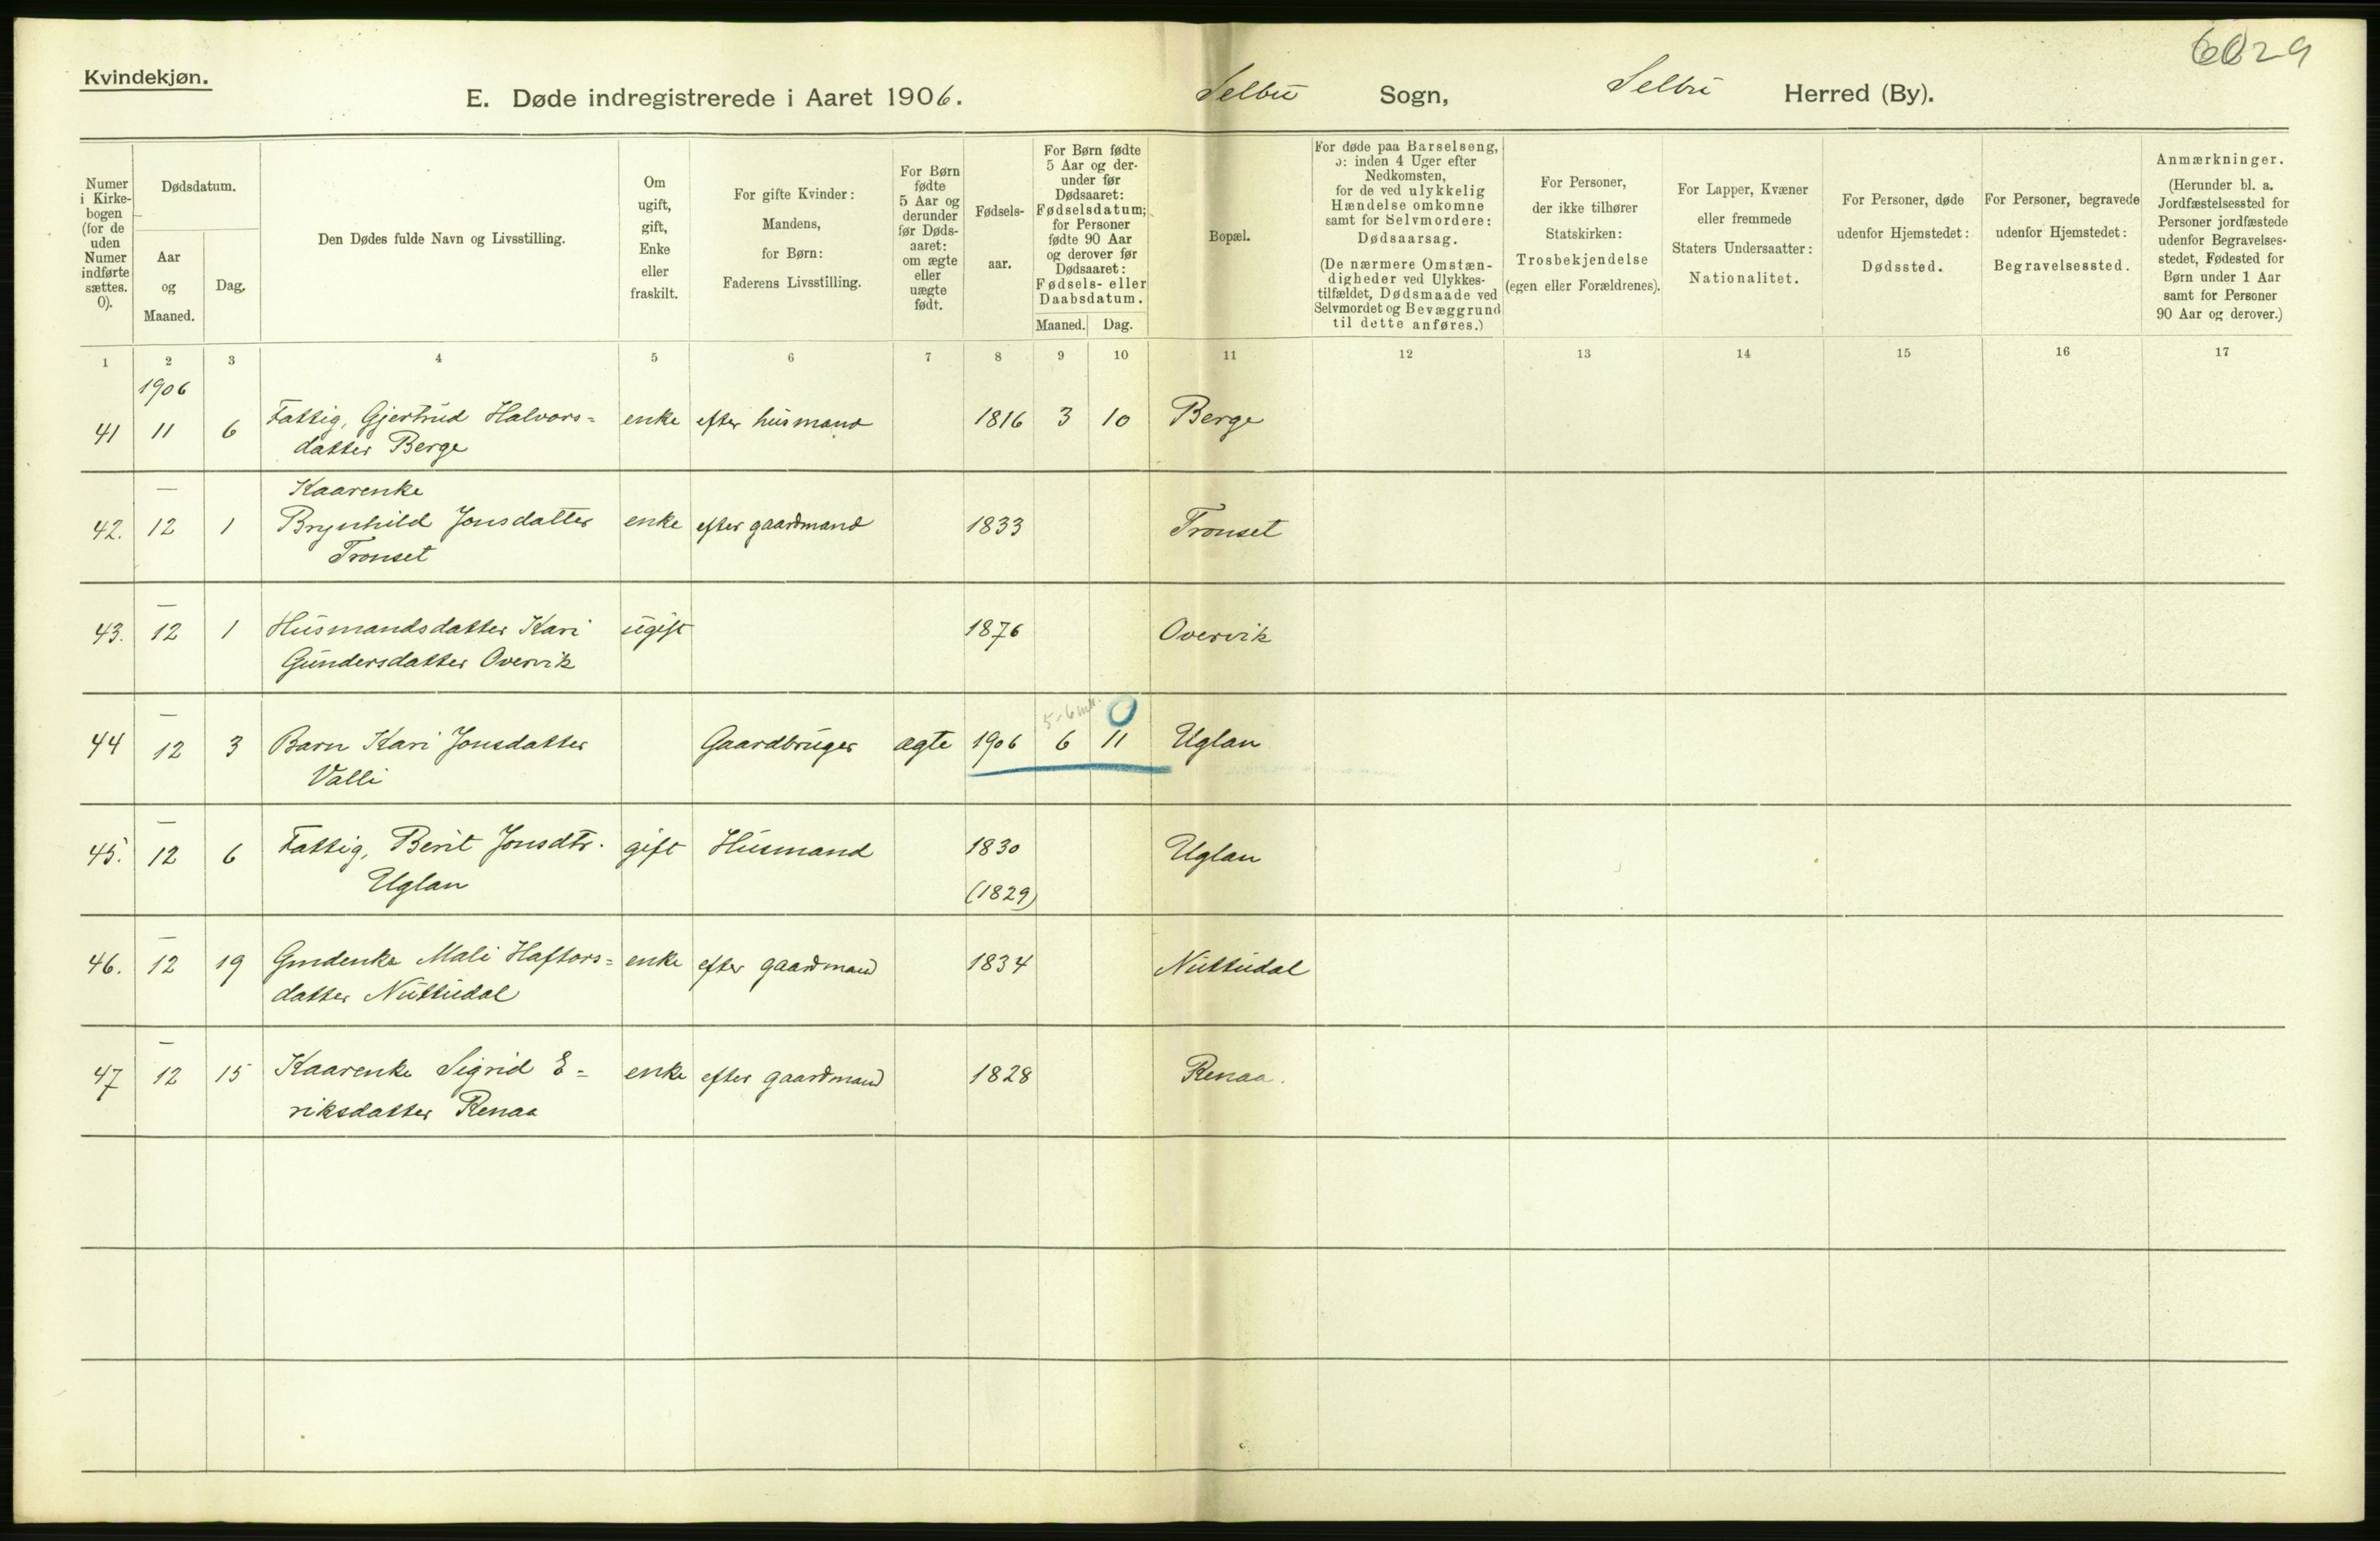 6029
Kvindekjøn.
E. Døde indregistrerede i Aaret 1906.
Selbu Sogn, Selbu Herred (By).
Numer
i Kirke-
bogen
(for de
uden
Numer
indførte
sættes.
0).
Dødsdatum.
Aar
og
Maaned.
Dag.
Den Dødes fulde Navn og Livsstilling.
Om
ugift,
gift,
Enke
eller
fraskilt.
For gifte Kvinder:
Mandens,
for Børn:
Faderens Livsstilling.
For Børn
fødte
5 Aar og
derunder
før Døds-
aaret:
om ægte
eller
uægte
født.
Fødsels-
aar.
For Børn fødte
5 Aar og der-
under før
Dødsaaret:
Fødselsdatum;
for Personer
fødte 90 Aar
og derover før
Dødsaaret:
Fødsels- eller
Daabsdatum.
Maaned. Dag.
Bopæl.
For døde paa Barselseng,
ɔ: inden 4 Uger efter
Nedkomsten,
for de ved ulykkelig
Hændelse omkomne
samt for Selvmordere:
Dødsaarsag.
(De nærmere Omstæn-
digheder ved Ulykkes-
tilfældet, Dødsmaade ved
Selvmordet og Bevæggrund
til dette anføres.)
For Personer,
der ikke tilhører
Statskirken:
Trosbekjendelse
(egen eller Forældrenes).
For Lapper, Kvæner
eller fremmede
Staters Undersaatter:
Nationalitet.
For Personer, døde
udenfor Hjemstedet:
Dødssted.
For Personer, begravede
udenfor Hjemstedet:
Begravelsessted.
Anmærkninger.
(Herunder bl. a.
Jordfæstelsessted for
Personer jordfæstede
udenfor Begravelses-
stedet, Fødested for
Børn under 1 Aar
samt for Personer
90 Aar og derover.)
1 2 3 4 5 6 7 8 9 10 11 12 13 14 15 16 17
1906
41 11 6 Fattig, Gjertrud Halvors= enke efter husmand 1816 3 10 Berge
datter Berge
— Kaarenke
42. 12 1 Brynhild Jonsdatter enke efter gaardmand 1833 Tronset
Tronset
—
43. 12 1 Husmandsdatter Kari ugift 1876 Overvik
Gundersdatter Overvik
— 5-6 mdr. 0
44 12 3 Barn Kari Jonsdatter Gaardbruger ægte 1906 6 11 Uglan
Valli
—
45. 12 6 Fattig, Berit Jonsdtr. gift Husmand 1830 Uglan
Uglan (1829)
—
46. 12 19 Gmdenke Mali Haftors= enke efter gaardmand 1834 Nuttudal
datter Nuttudal
—
47 12 15 Kaarenke Sigrid E= enke efter gaardmand 1828 Renaa.
riksdatter Renaa